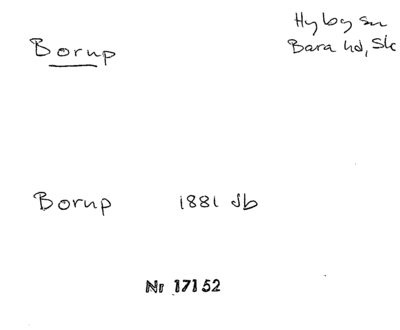 Borup
Hyby sn
Bara hd, Sk
Borup 1881 Jb
Nr 17152